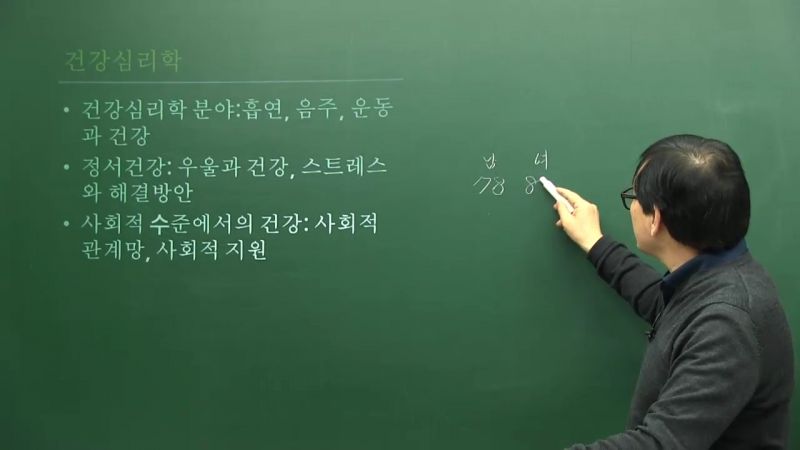 건강심리학
• 건강심리학 분야:흡연, 음주, 운동
과 건강
• 정서건강: 우울과 건강, 스트레스
와 해결방안
• 사회적 수준에서의 건강: 사회적
관계망, 사회적 지원
남 녀
78 8